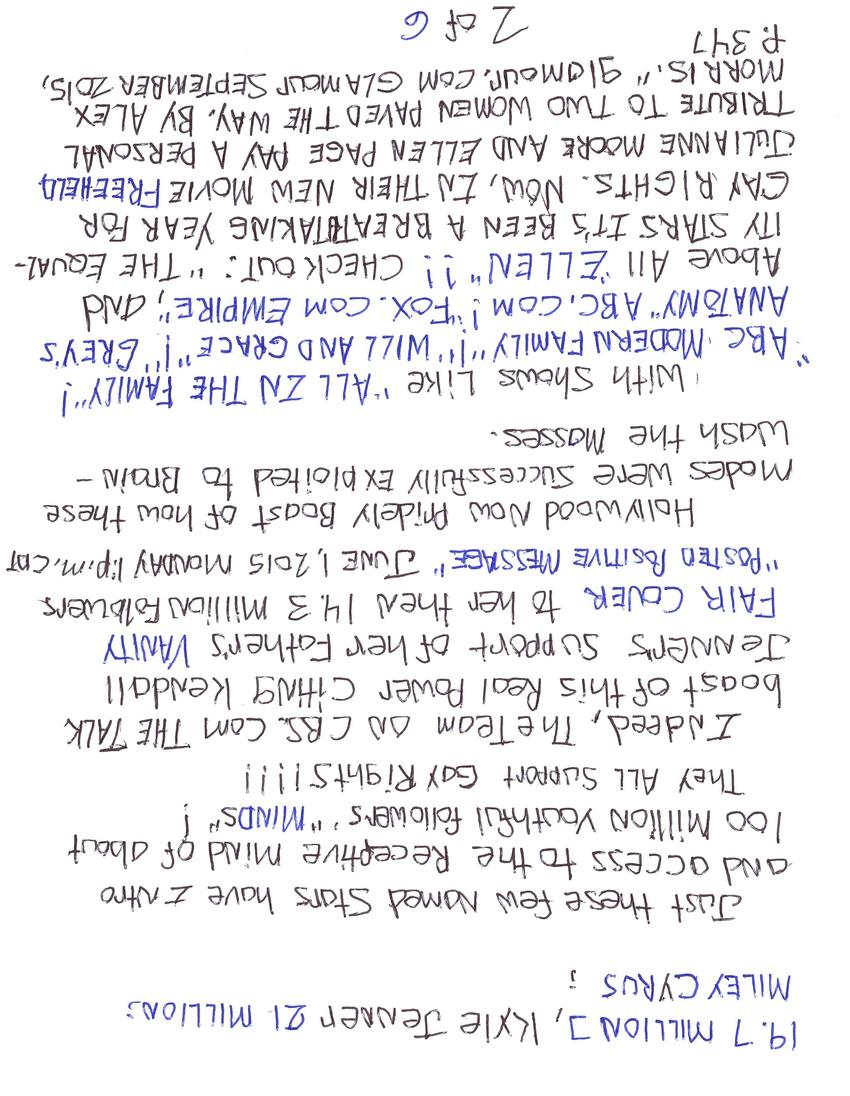 19.7 MILLION], KYLIE JENNER 21 MILLION;
MILEY CYRUS ;
Just these few Named Stars have INtro
and access to the Receptive mind of about
100 Million Youthful followers' "MINDS" !
THEY ALL Support GAY RightS!!!!
INdeed, The Team ON CBS. Com THE TALK
boast of this Real Power Citing Kendall
JENNER's Support of her Father's VANITY
FAIR COVER to her then 14.3 million Followers
"POSTED POSITIVE MESSAGE" JUNE 1, 2015 MONDAY 1:p.m. CDT
Hollywood Now Pridely Boast of how these
Modes were Successfully Exploited to Brain-
Wash the Masses.
With Shows Like "ALL IN THE FAMILY"!
"ABC MODERN FAMILY"!" "WILL AND GRACE"!" GREY'S
ANATOMY" ABC. COM ! "FOX. COM EMPIRE"; and
Above All "ELLEN"!! CHECK OUT: "THE EQUAL-
ITY STARS IT'S BEEN A BREATHTAKING YEAR FOR
GAY RIGHTS. NOW, IN THEIR NEW MOVIE FREEHELD
JULIANNE MOORE AND ELLEN PAGE PAY A PERSONAL
TRIBUTE TO TWO WOMEN PAVED THE WAY. BY ALEX
MORRIS." glamour. com GLAMOUR SEPTEMBER 2015,
P. 347
2 of 6